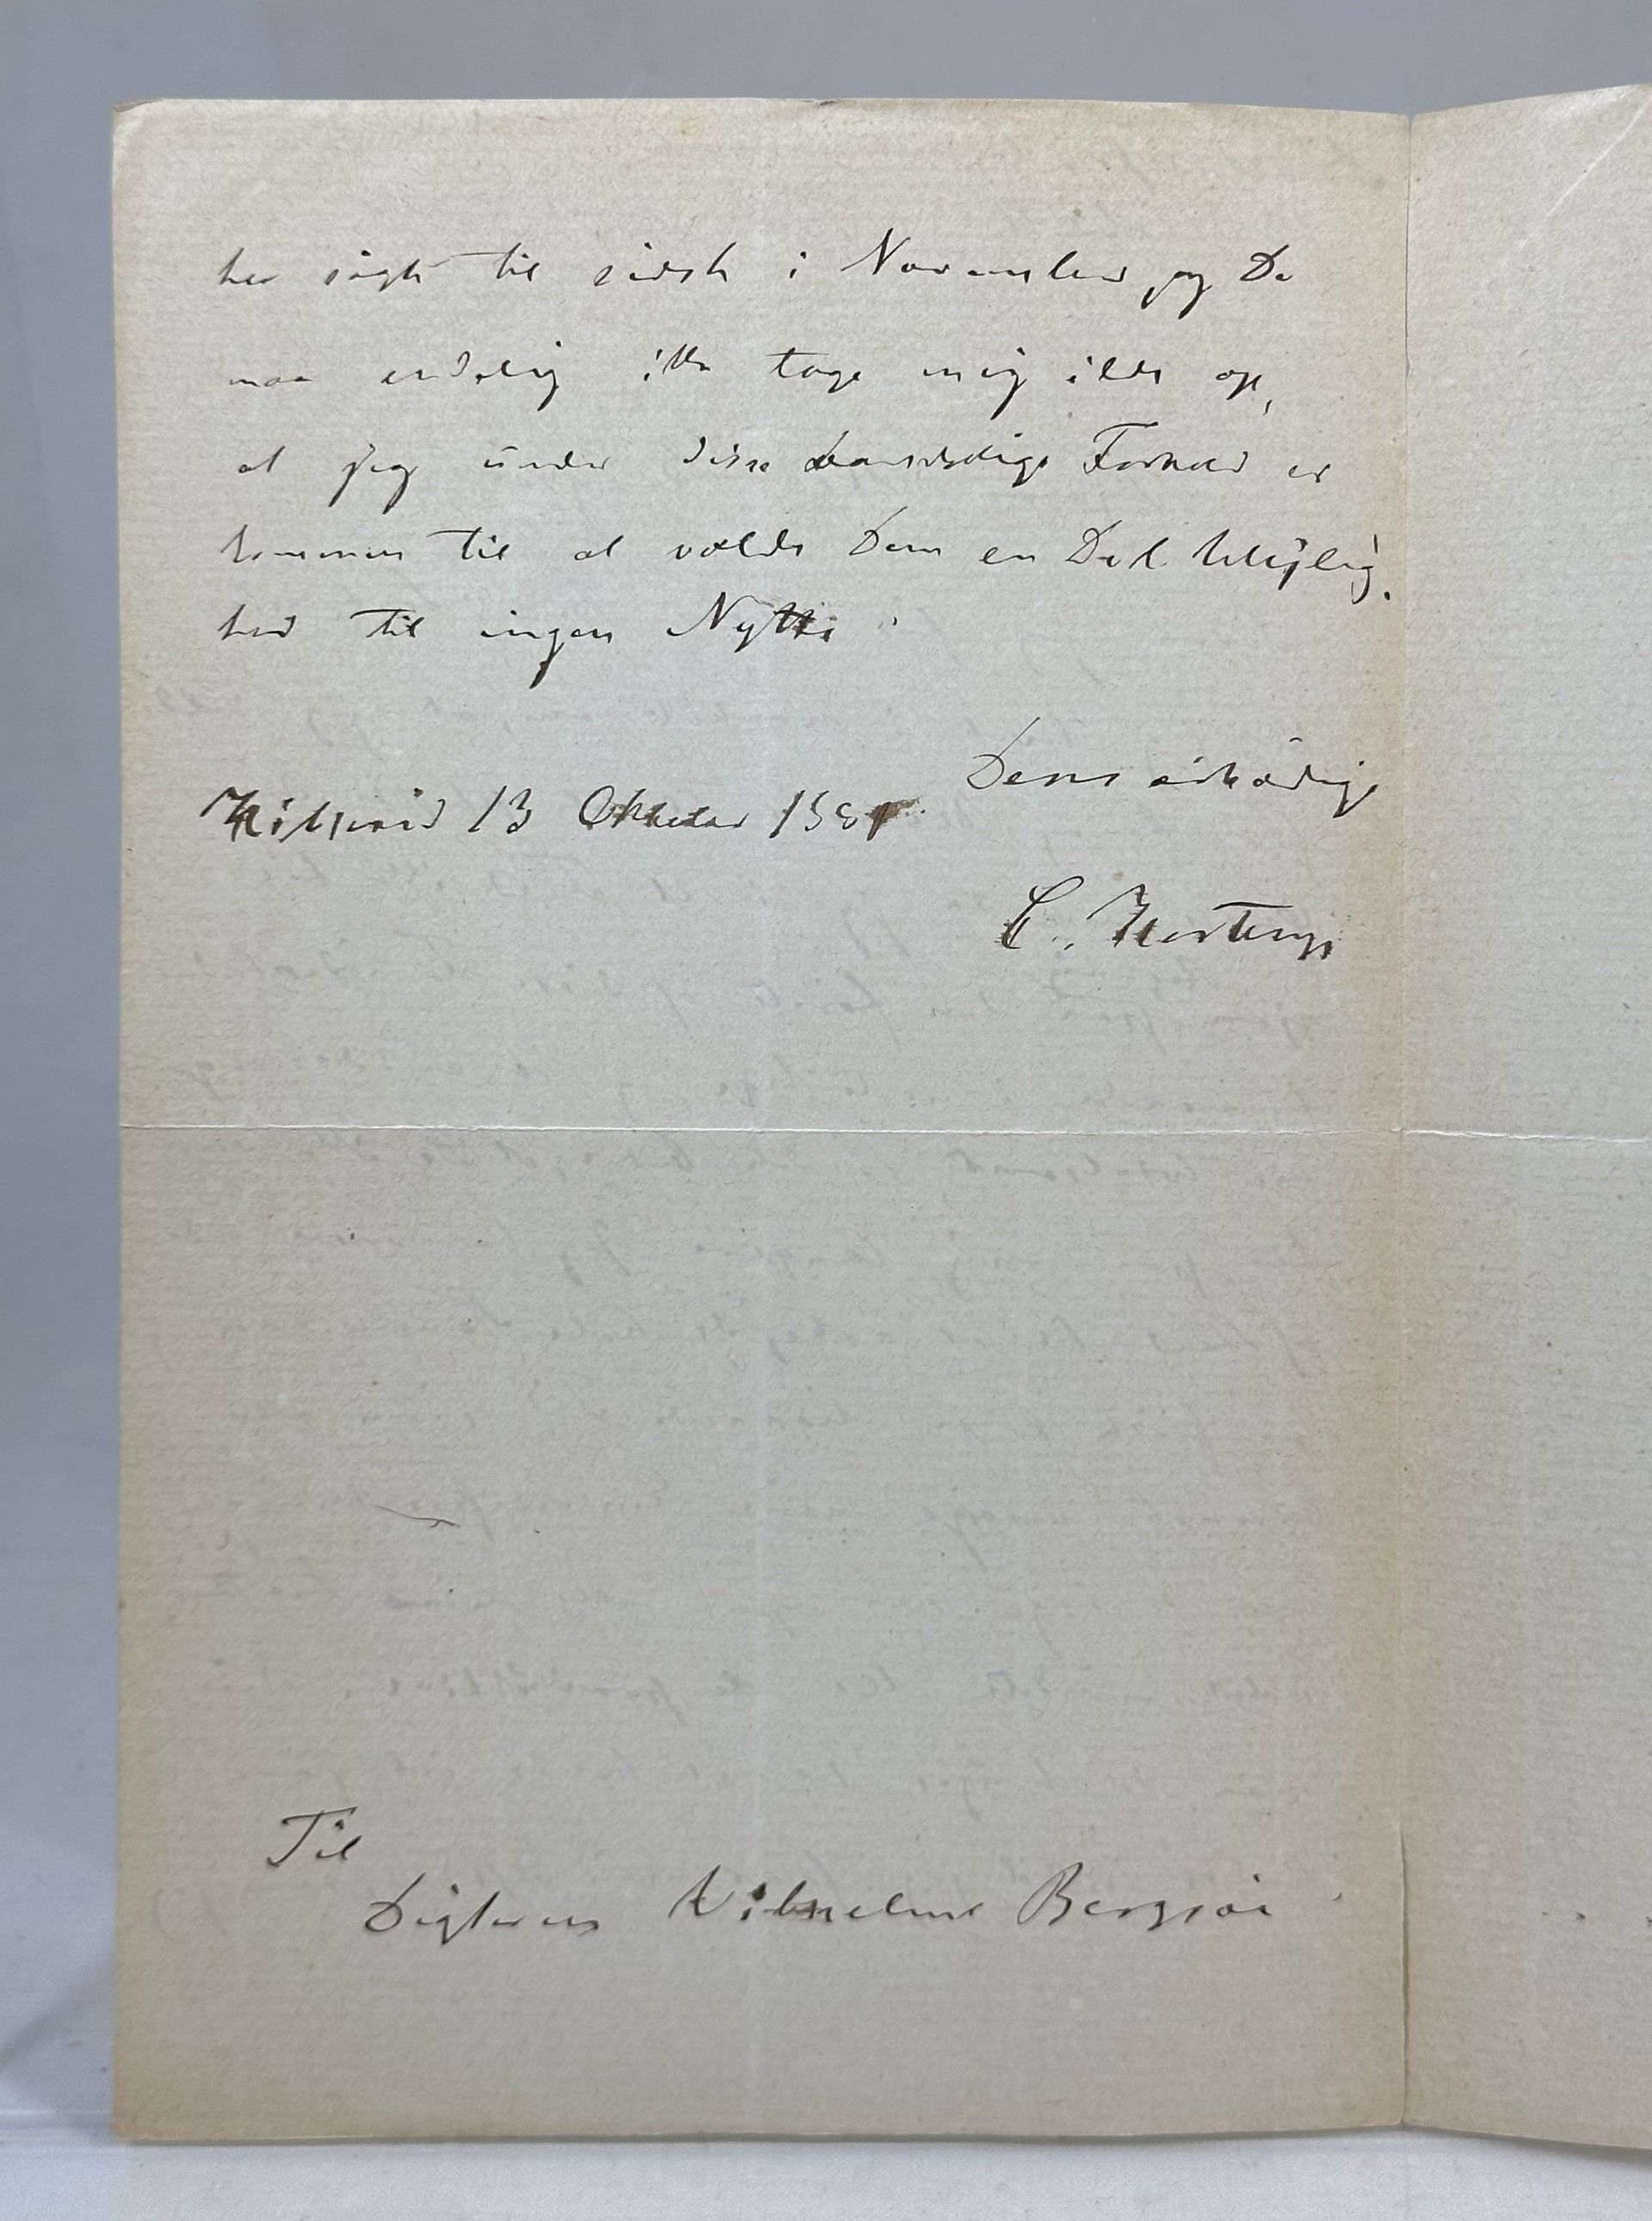 til sidst i November, og De
maa endelig ikke tage mig ilde op,
at jeg under disse vanskelige Forhold er
kommen til at volde Dem en Del Ulejlig-
hed til ingen Nytte.
Deres ærbødige
13 Oktober 188
C. Hostrup
Til
Digteren Vilhelm Bergsøe